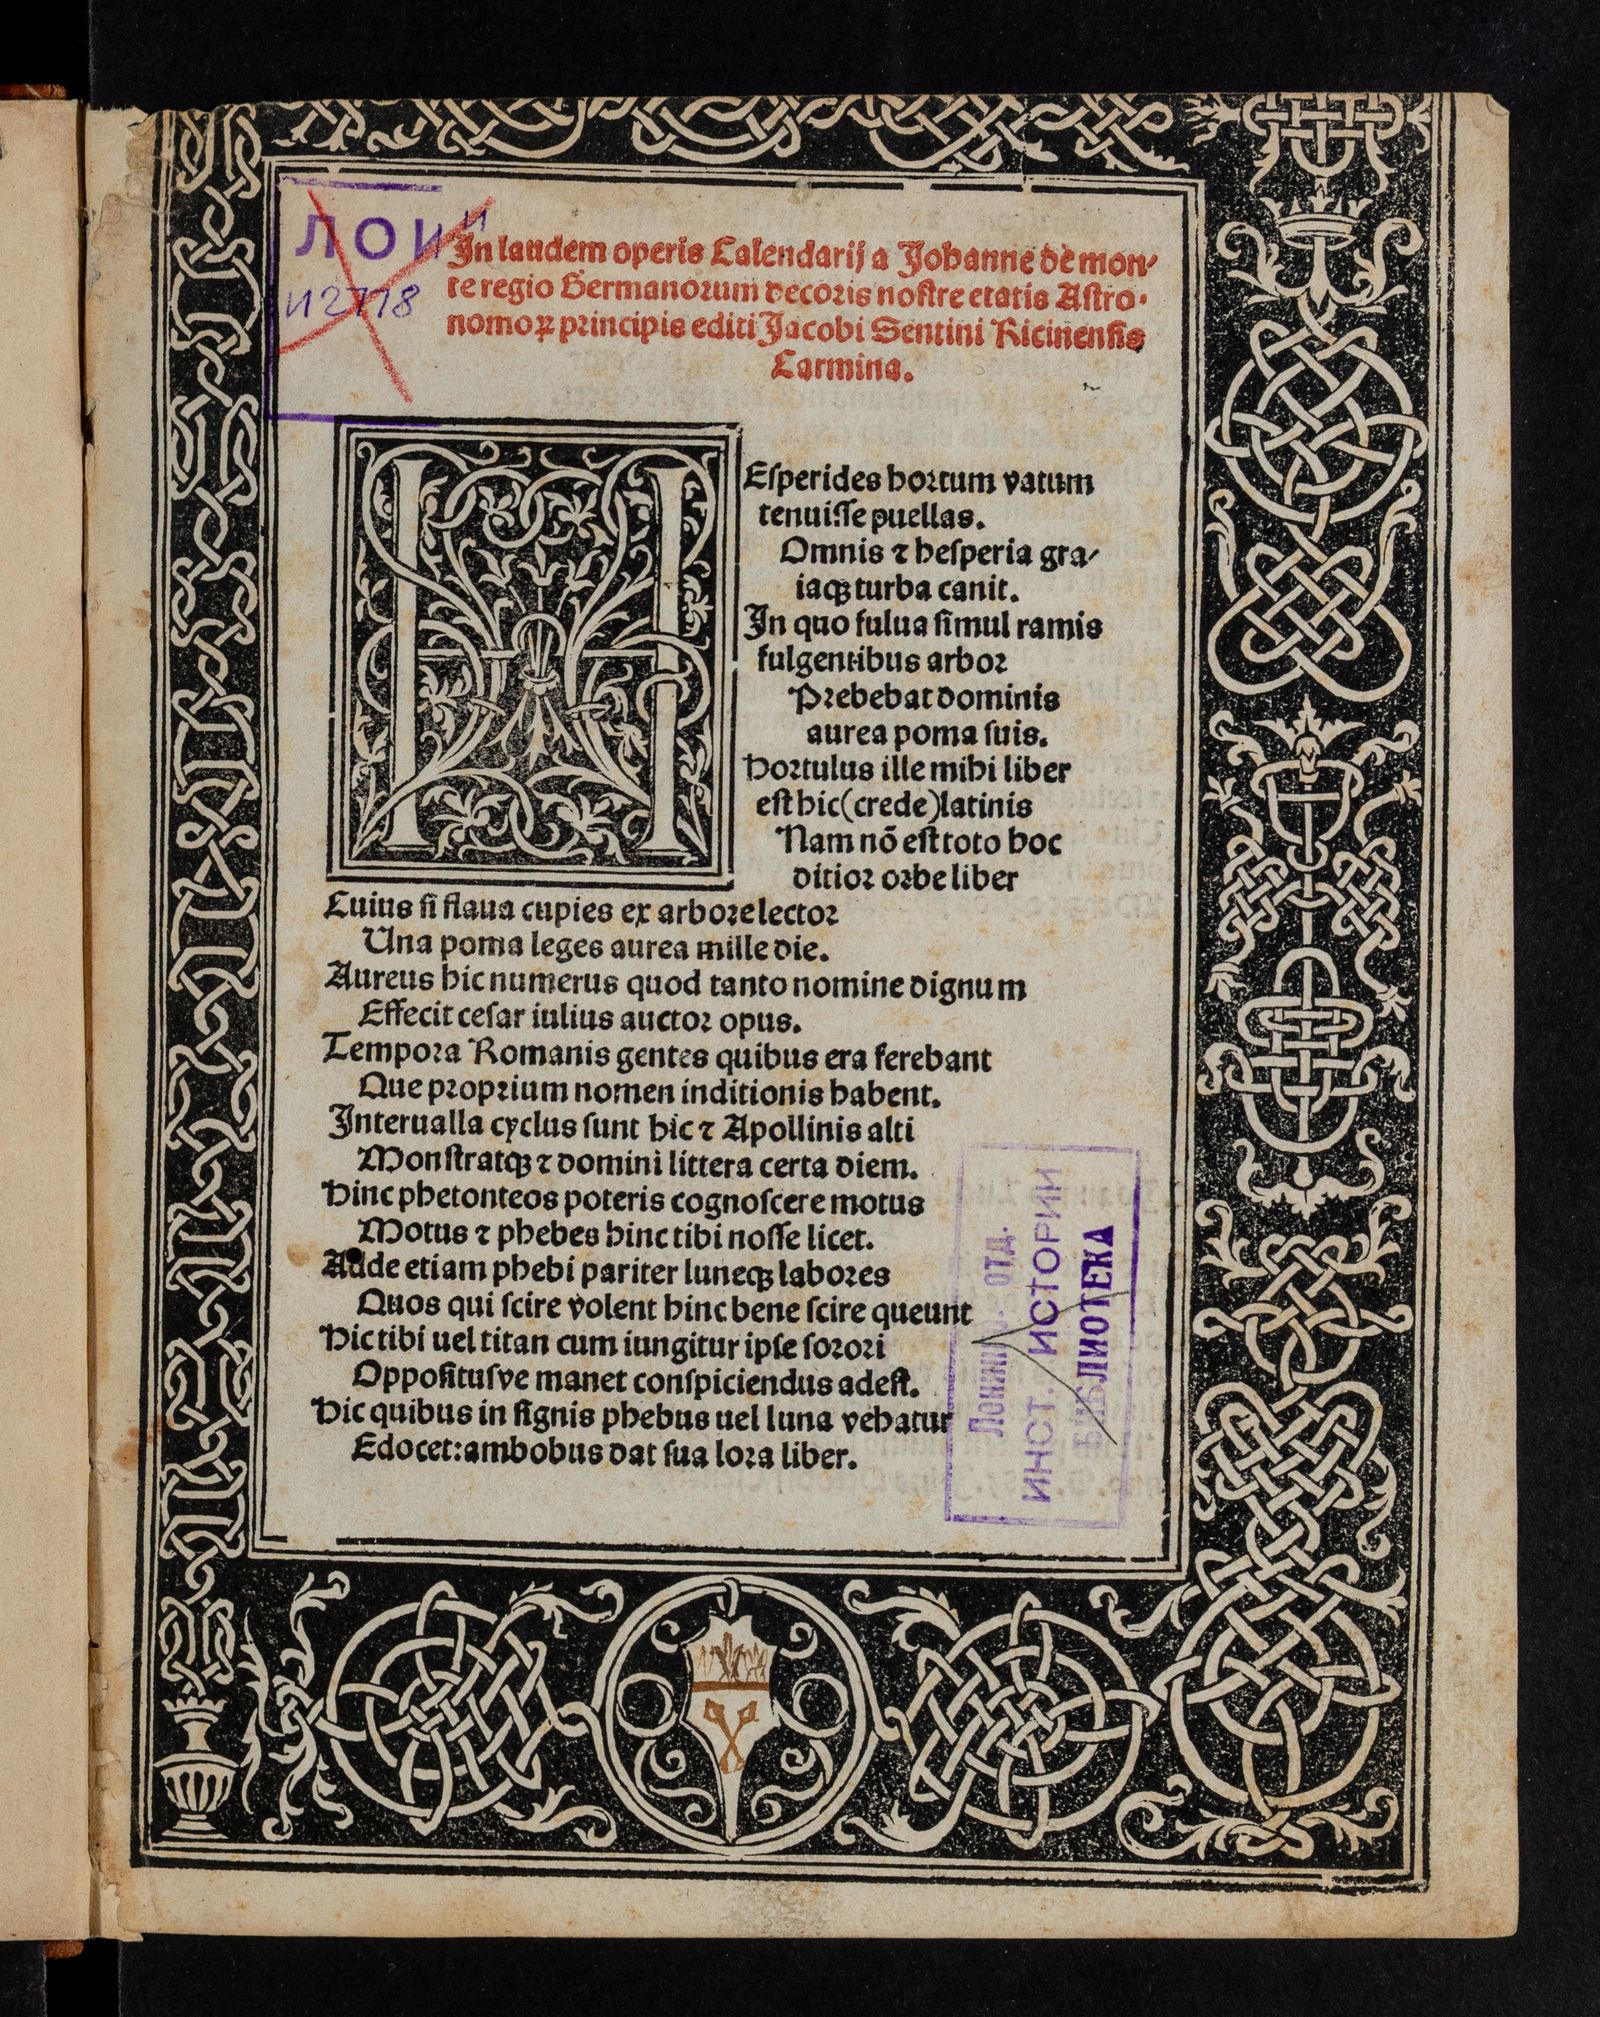 ЛОИИ
И2718
In laudem operis Calendarij a Johanne de mon-
te regio Germanorum decoris nostre etatis Astro-
nomoꝝ principis editi Jacobi Sentini Ricinensis
Carmina.
HEſperides hortum vatum
tenuiſſe puellas.
Omnis ⁊ heſperia gra-
iaqꝫ turba canit.
In quo fulua ſimul ramis
fulgentibus arbor
Prebebat dominis
aurea poma ſuis.
Hortulus ille mihi liber
eſt hic (crede) latinis
Nam nō eſt toto hoc
ditior orbe liber
Cuius ſi flaua cupies ex arbore lector
Una poma leges aurea mille die.
Aureus hic numerus quod tanto nomine dignum
Effecit ceſar iulius auctor opus.
Tempora Romanis gentes quibus era ferebant
Que proprium nomen inditionis habent.
Interualla cyclus ſunt hic ⁊ Apollinis alti
Monſtratqꝫ ⁊ domini littera certa diem.
Hinc phetonteos poteris cognoſcere motus
Motus ⁊ phebes hinc tibi noſſe licet.
Adde etiam phebi pariter luneqꝫ labores
Quos qui ſcire volent hinc bene ſcire queunt
Hic tibi uel titan cum iungitur ipſe ſorori
Oppoſituſve manet conſpiciendus adeſt.
Hic quibus in ſignis phebus uel luna vehatur
Edocet: ambobus dat ſua lora liber.
ОТД.
ИНСТ. ИСТОРИИ
БИБЛИОТЕКА